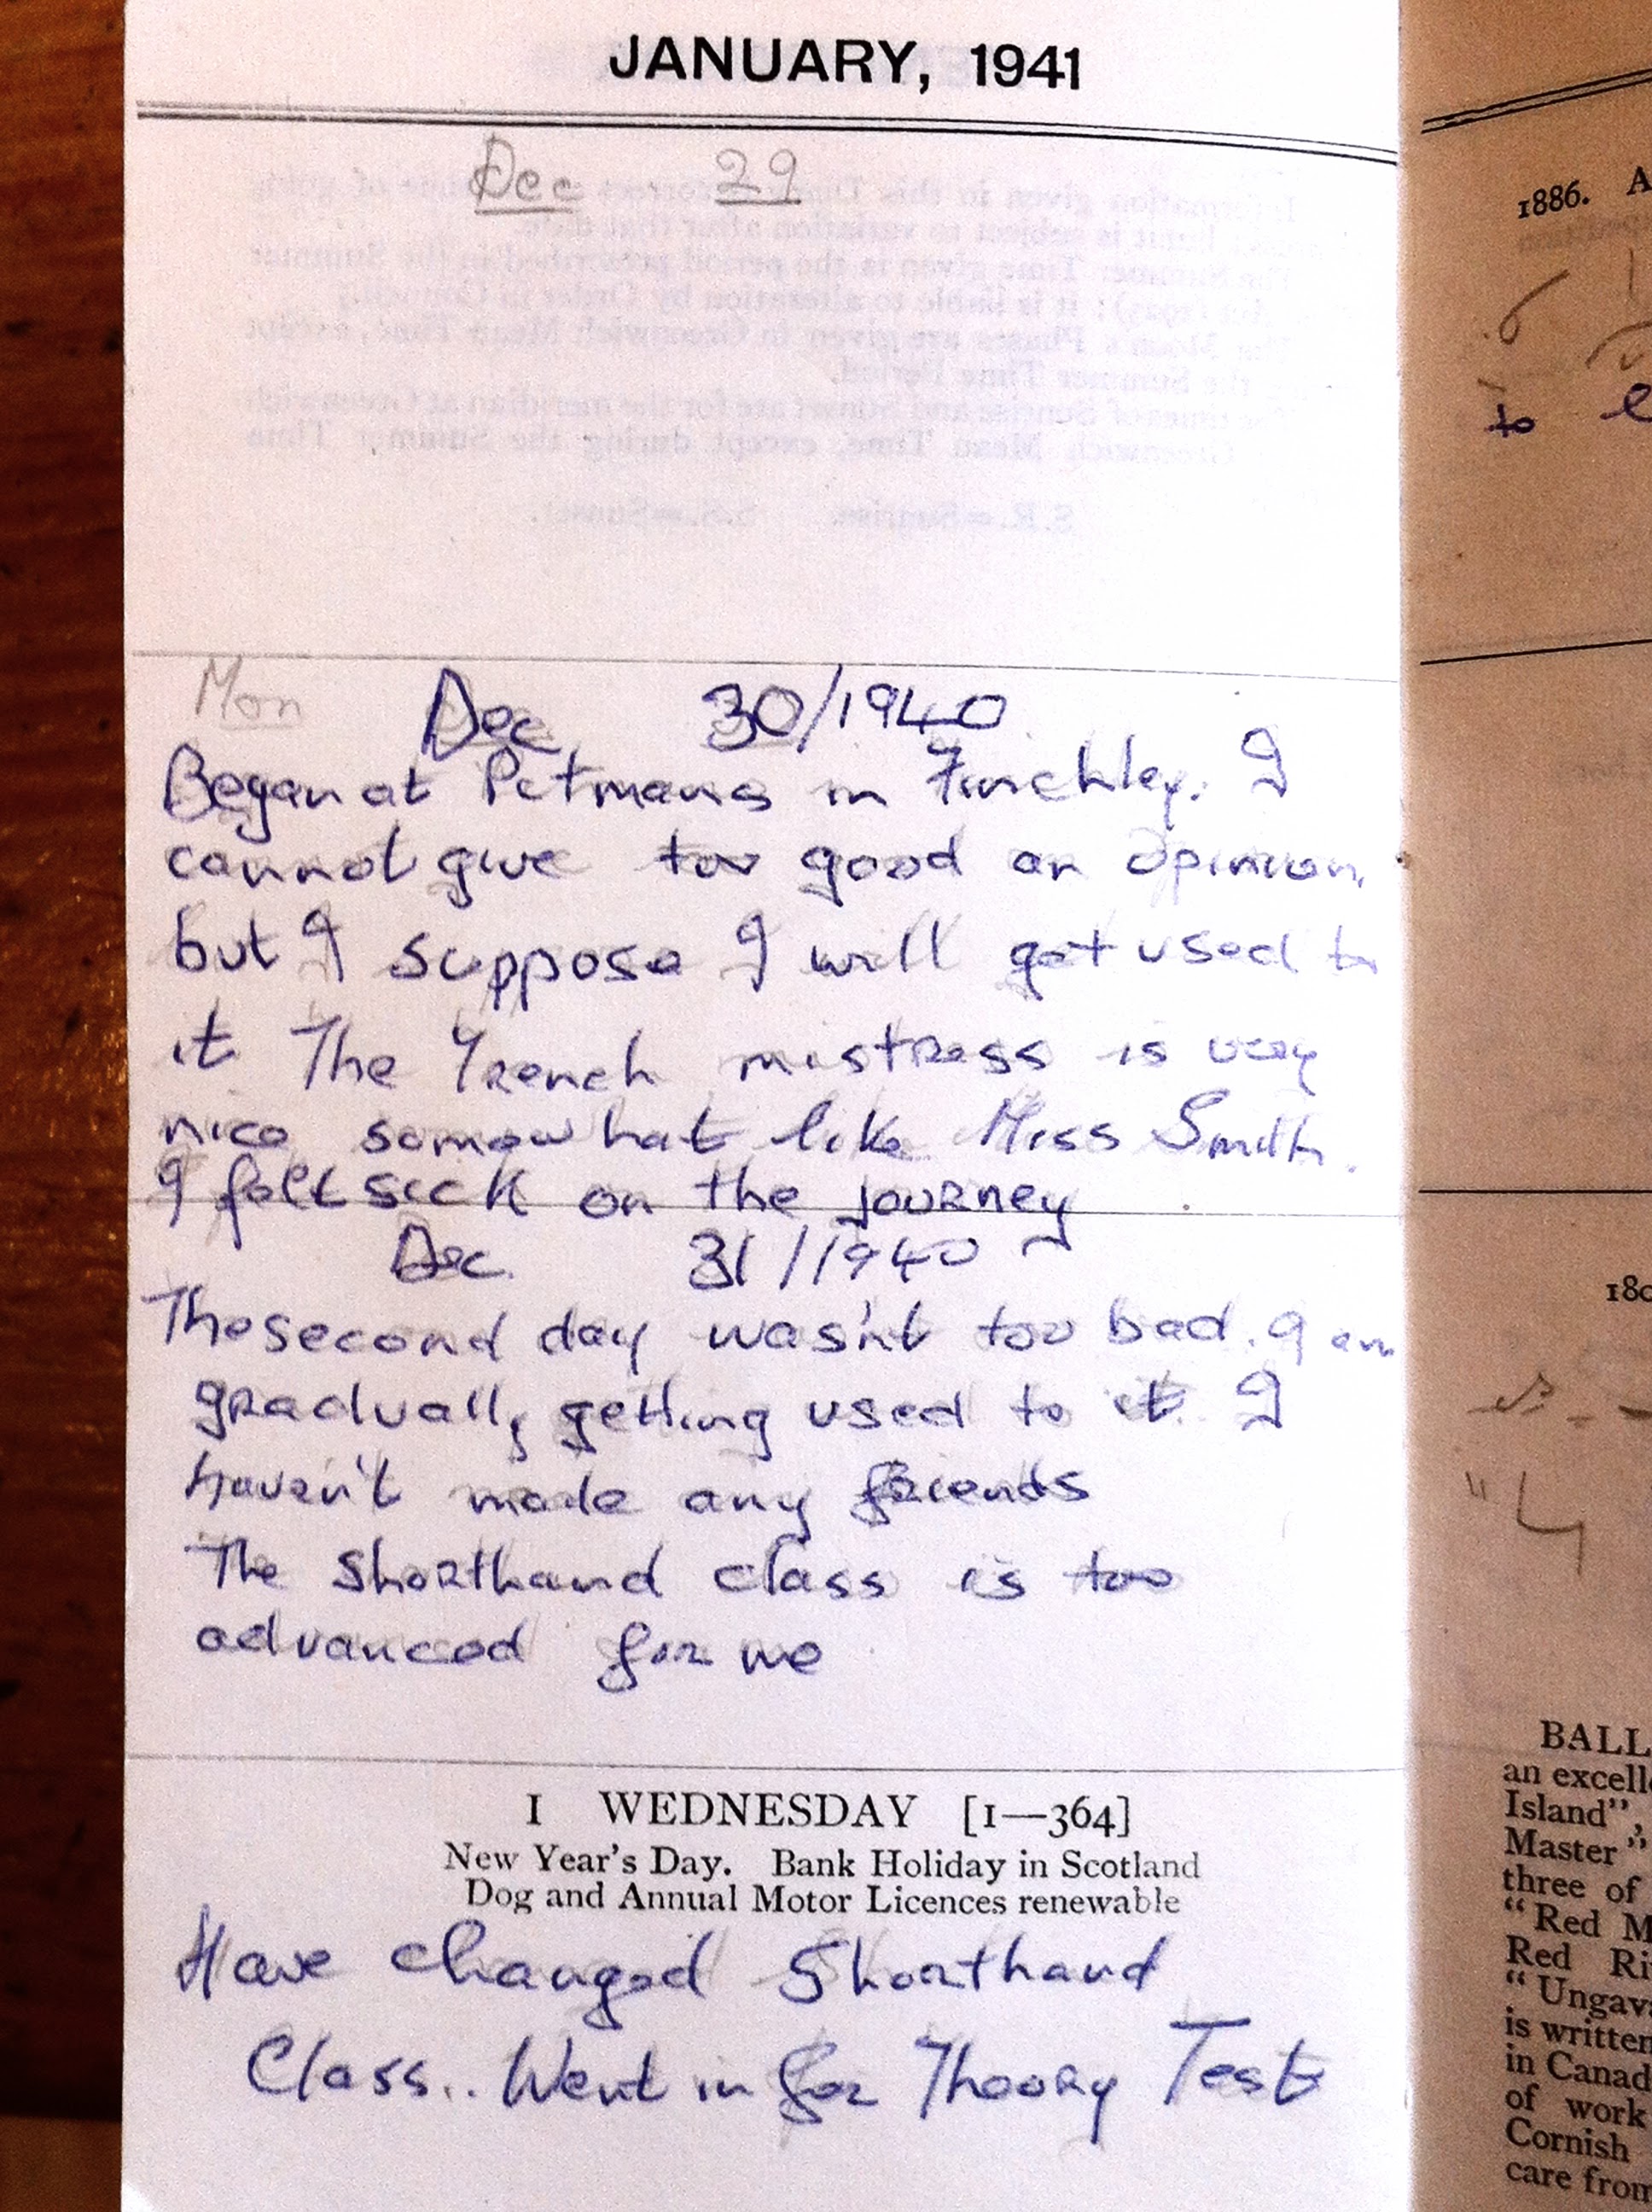 JANUARY, 1941
Dec 29
Mon Dec 30/1940
Began at Pitmans in Finchley. I
cannot give too good an opinion,
but I suppose I will get used to
it The French mistress is very
nice somewhat like Miss Smith.
I felt sick on the journey
Dec. 31/1940
The second day wasn't too bad. I am
gradually getting used to it. I
haven't made any friends
The Shorthand class is too
advanced for me
1 WEDNESDAY [1—364]
New Year's Day. Bank Holiday in Scotland
Dog and Annual Motor Licences renewable
Have changed Shorthand
Class.. Went in for Theory Test
1886. A
to
180
BALL
an excell
Island",
Master"
three of
"Red M
Red Ri
"Ungav
is written
in Canad
of work
Cornish
care from